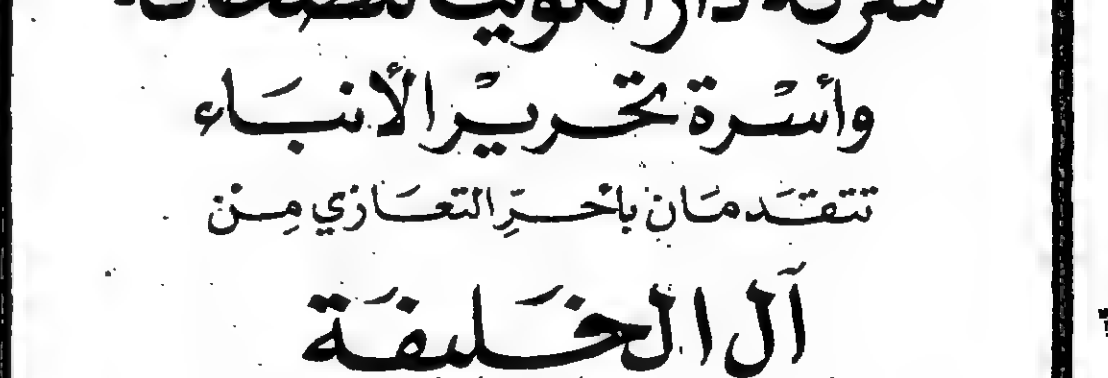 شركة دار الكويت للصحافة
وأسرة تحرير الأنباء
تتقدمان بأحر التعازي من
آل الخليفة